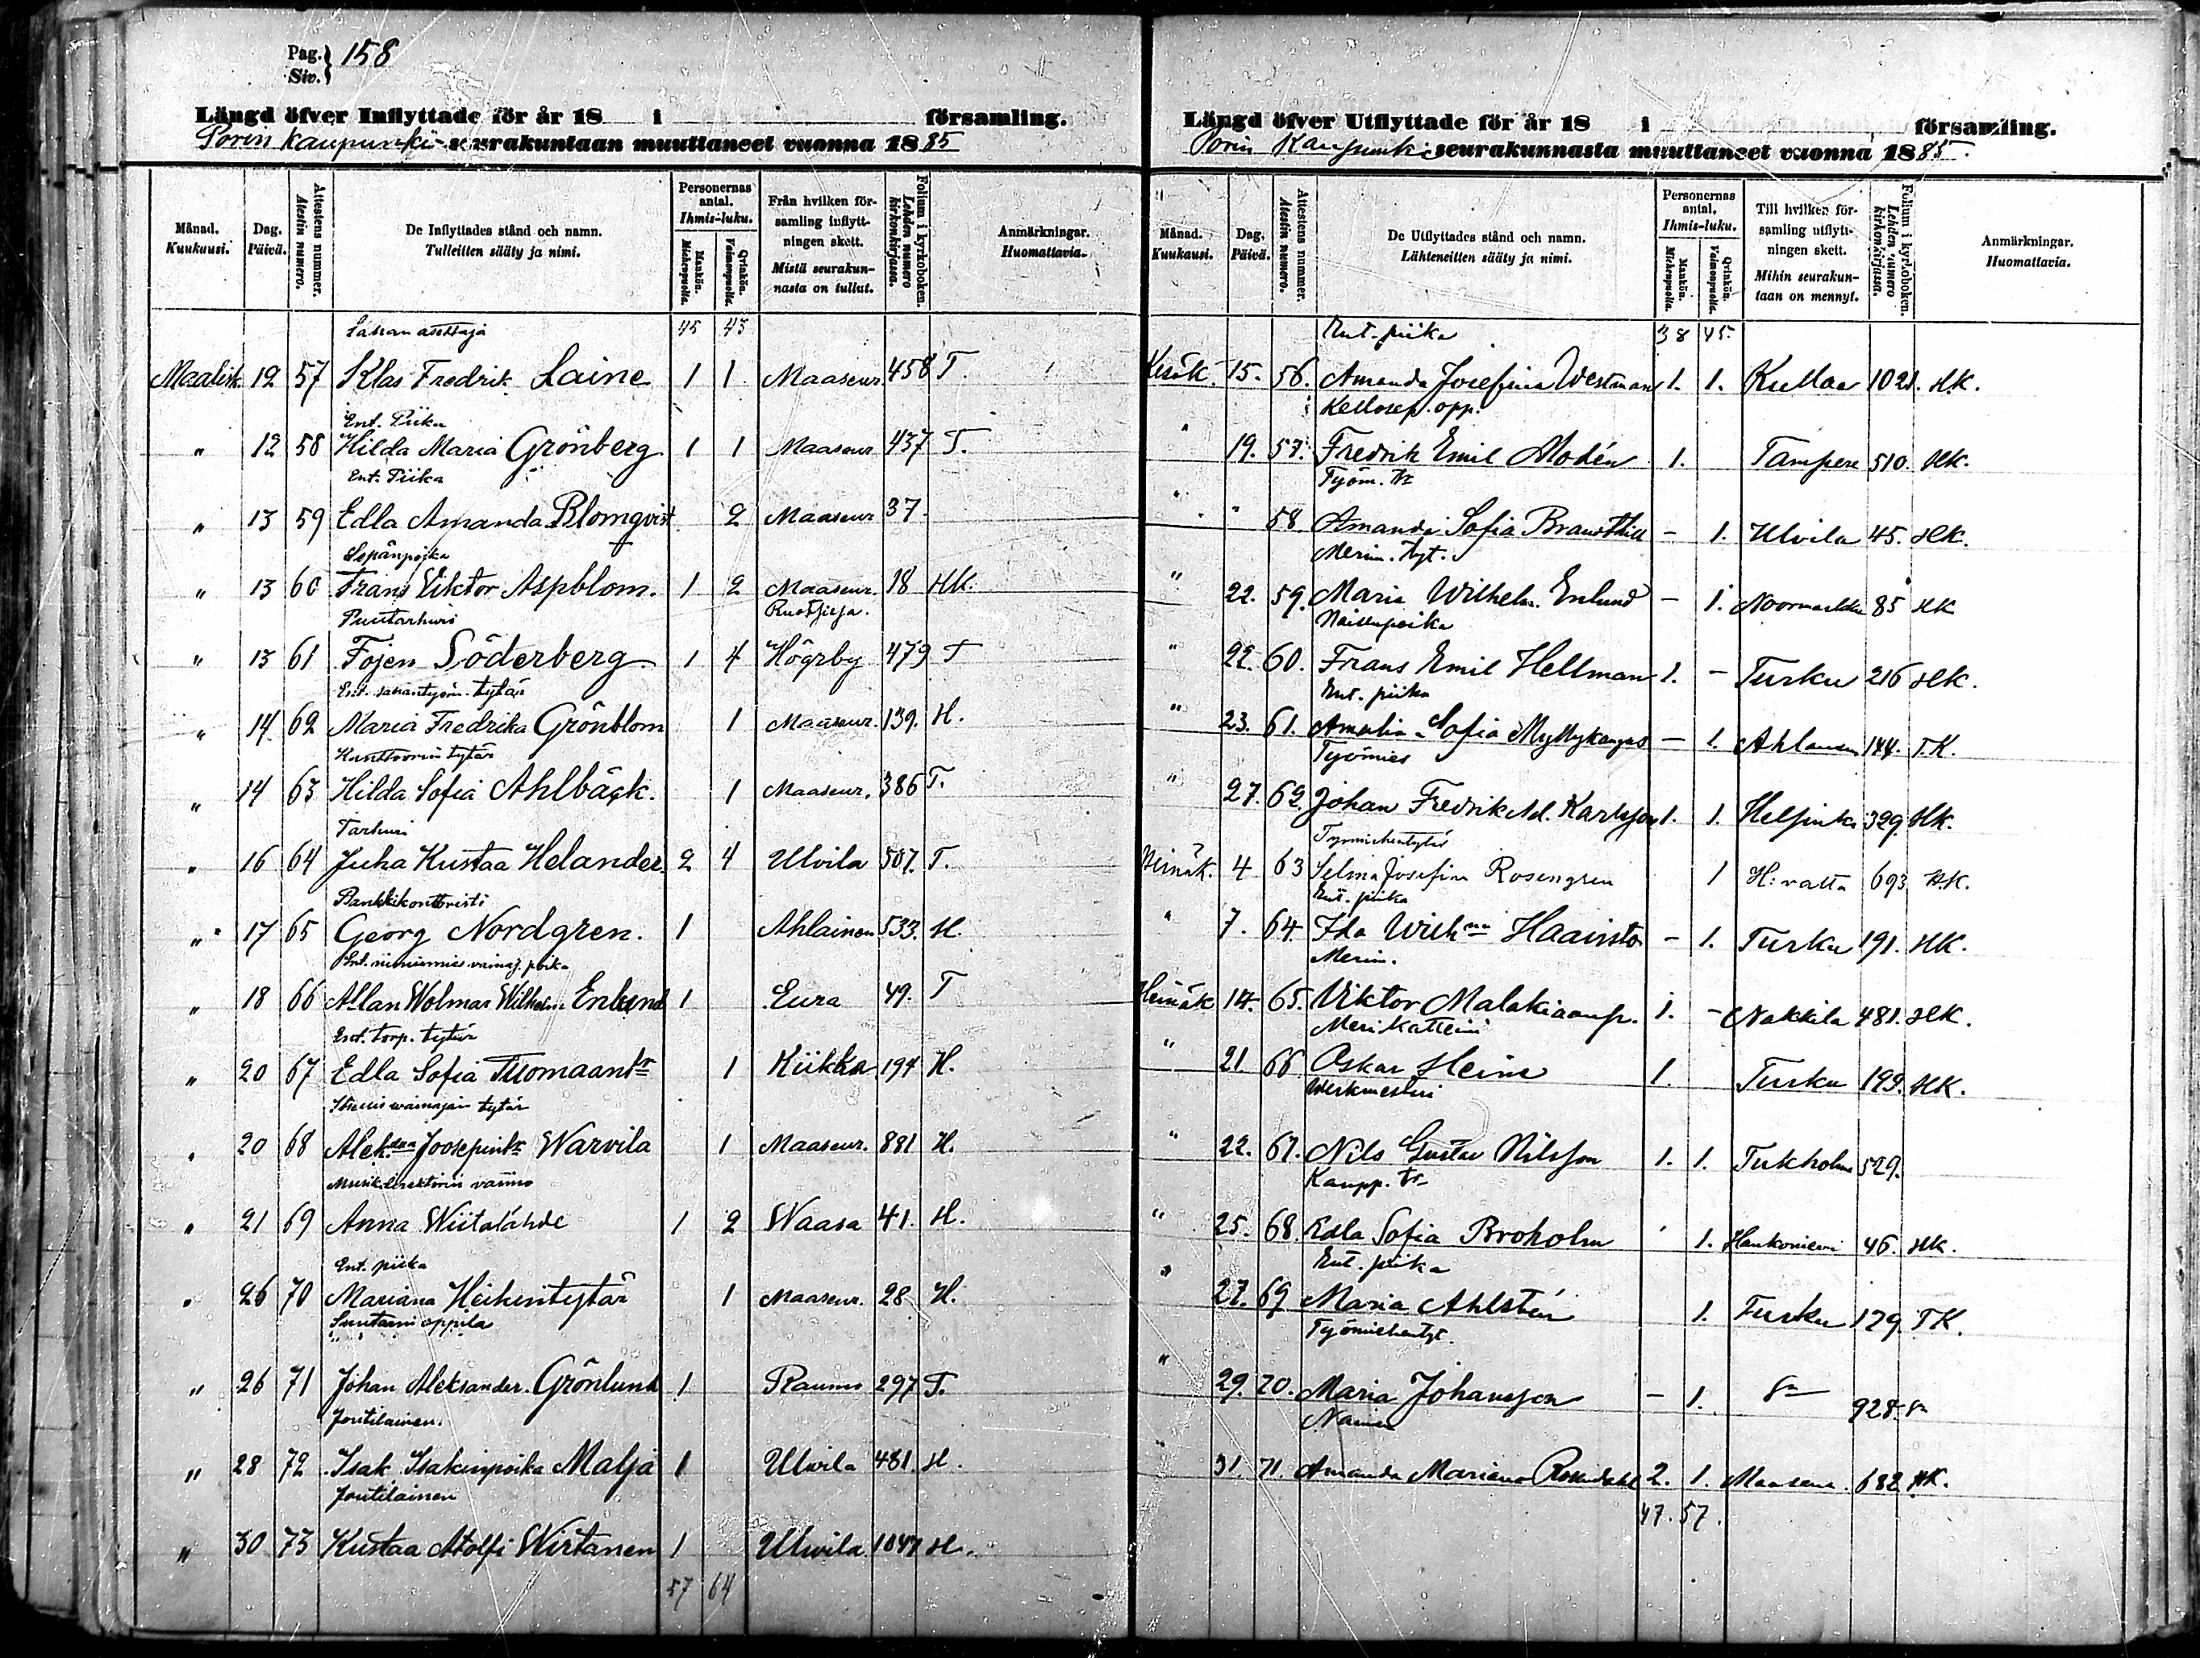 Pag. Siv. } 158
Längd öfver Inflyttade för år 18 i församling.
Porin kaupunki-seurakuntaan muuttaneet vuonna 1885
Månad. Kuukausi.
Dag. Päivä.
Attestens nummer. Atestin numero.
De Inflyttades stånd och namn. Tulleitten sääty ja nimi.
Personernas antal. Ihmis-luku.
Mankön. Miehenpuolta.
Qvinkön. Vaimonpuolta.
Från hvilken församling inflyttningen skett. Mistä seurakunnasta on tullut.
Folium i kyrkoboken. Lehden numero kirkonkirjassa.
Anmärkningar. Huomattavia.
Sahan asettaja 45 43
Maalisk. 12 57 Klas Fredrik Laine 1 1 Maaseur 458 T.
Ent. Piika
" 12 58 Hilda Maria Grönberg. 1 1 Maaseur 437 T.
Ent. Piika
" 13 59 Edla Amanda Blomqvist 2 Maaseur 37
Sepänpoika
" 13 60 Frans Viktor Aspblom. 1 2 Maaseur. 18 HK.
Puutarhuri
" 13 61 Fojen Söderberg 1 4 Högsby 479 T
Ent. sahantyöm. tytär
" 14 62 Maria Fredrika Grönblom 1 Maaseur. 139. H.
Konttoorin tytär
" 14 63 Hilda Sofia Ahlbäck. 1 Maaseur. 386 T.
Tarhuri
" 16 64 Juha Kustaa Helander. 2 4 Ulvila 507. T.
Pankkikonttoristi
" 17 65 Georg Nordgren. 1 Ahlainen 533. H.
" 18 66 Allan Wolmar Wilhelm Enlund 1 Eura 49. T
Ent. torp. tytär
" 20 67 Edla Sofia Tuomaantr 1 Kiikka 194 H.
Itsellis wainajan tytär
" 20 68 Alekdra Joosepintr Warvila 1 Maaseur. 881 H.
Musikdirektörin vaimo
" 21 69 Anna Wiitalähde 1 2 Waasa 41. H.
Ent. piika
" 26 70 Mariana Heikintytär 1 Maaseur. 28 H.
Suutarin oppila
" 26 71 Johan Aleksander Grönlund 1 Raumo 297 T.
Joutilainen.
" 28 72 Isak Isakinpoika Malja 1 Ulvila 481. H.
Joutilainen
" 30 73 Kustaa Atolfi Wirtanen 1 Ulvila 1047 H.
57 64
Längd öfver Utflyttade för år 18 i församling.
Porin Kaupunki seurakunnasta muuttaneet vuonna 1885.
Månad. Kuukausi.
Dag. Päivä.
Attestens nummer. Atestin numero.
De Utflyttades stånd och namn. Lähteneitten sääty ja nimi.
Personernas antal. Ihmis-luku.
Mankön. Miehenpuolta.
Qvinkön. Vaimonpuolta.
Till hvilken församling utflyttningen skett. Mihin seurakuntaan on mennyt.
Folium i kyrkoboken. Lehden numero kirkonkirjassa.
Anmärkningar. Huomattavia.
Ent. piika 38 45.
Kesäk. 15. 56. Amanda Josefina Westman 1. 1. Kullaa 1021. HK.
Kellosep. opp.
" 19. 57. Fredrik Emil Modén 1. Tampere 510. HK.
Työm. tr
" " 58 Amanda Sofia Brandthill - 1. Ulvila 45. HK.
Merim. tyt.
" 22. 59. Maria Wilhelm. Enlund - 1. Noormarkku 85 HK
" 22. 60. Frans Emil Hellman 1. - Turku 216 HK.
Ent. piika
" 23. 61. Amalia Sofia Myllykangas - 1. Ahlainen 144. T.K.
Työmies
" 27. 62. Johan Fredrik Ad. Karlsson 1. 1. Helsinki 329. HK.
Työmiehentytär
Heinäk. 4 63 Selma Josefina Rosengren 1 693 HK.
Ent. piika
" 7. 64. Ida Wilhna Haavisto - 1. Turku 191. HK.
Merim.
Heinäk 14. 65. Viktor Malakiaanp. 1. - Nakkila 481. HK.
Merikatteini
" 21 66 Oskar Heine 1. Turku 199. HK.
Werkmestari
" 22. 67. Nils Gustav Nilsson 1. 1. Tukholma 529.
Kaupp. tr
" 25. 68. Edla Sofia Broholm 1. Hankoniemi 46. HK.
Ent. piika
" 27. 69 Maria Ahlstén 1. Turku 129. TK.
Työmiehentyt.
" 29. 70. Maria Johansson - 1. 928.
Nainen
" 31. 71. Amanda Mariana Rosendahl 2. 1. Maaseur. 682 HK.
47. 57.